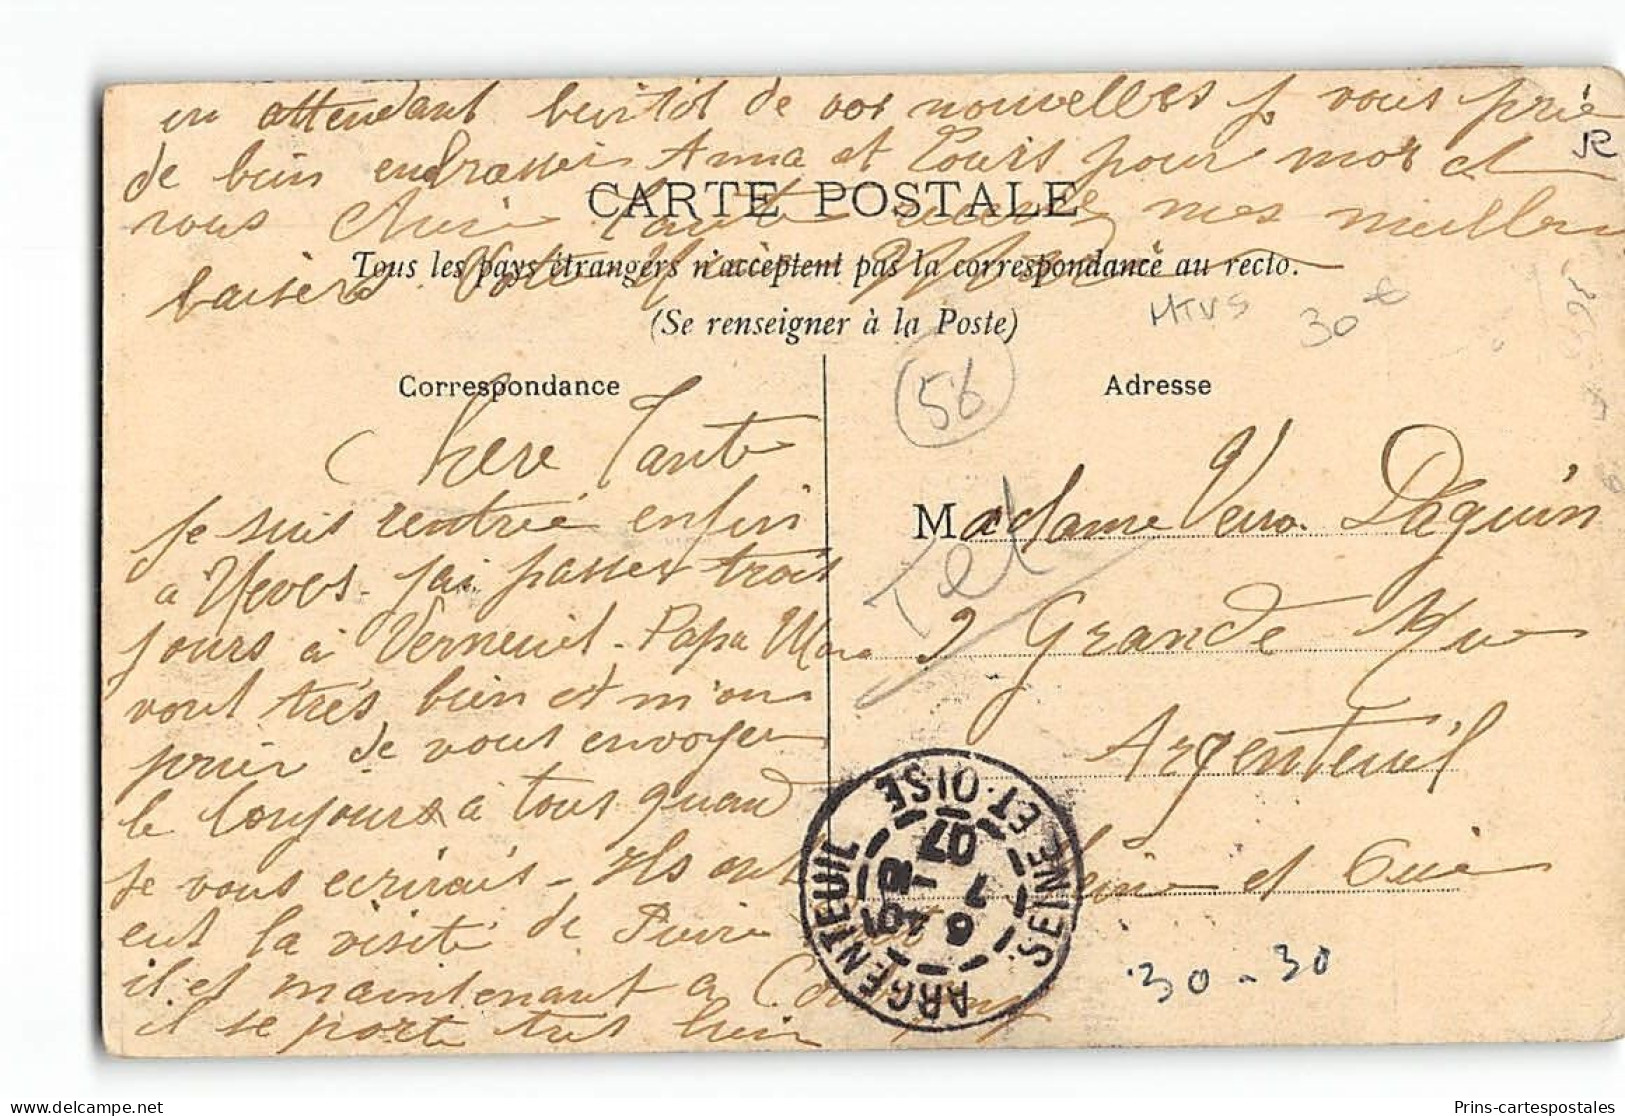 en attendant bientôt de vos nouvelles je vous prie
de bien embrasser Anna et Louis pour moi et
vous chère tante recevez mes meilleurs
baisers Votre
R
CARTE POSTALE
Tous les pays étrangers n'acceptent pas la correspondance au recto.
(Se renseigner à la Poste)
MTVS
30 €
Correspondance
Adresse
56
Chere Tante
je suis rentrée enfin
a Yevres - j'ai passer trois
jours à Verneuil - Papa Mam
vont très bien et m'on
prier de vous envoyer
le bonjour à tous quand
je vous ecrirais - Ils ont
eut la visite de Pierre
il et maintenant a
il se porte très bien
Madame Veuve Daguin
Tel
9 Grande Rue
Argenteuil
Seine et Oise
ARGENTEUIL
SEINE-ET-OISE
07
30 - 30
Prins-cartespostales